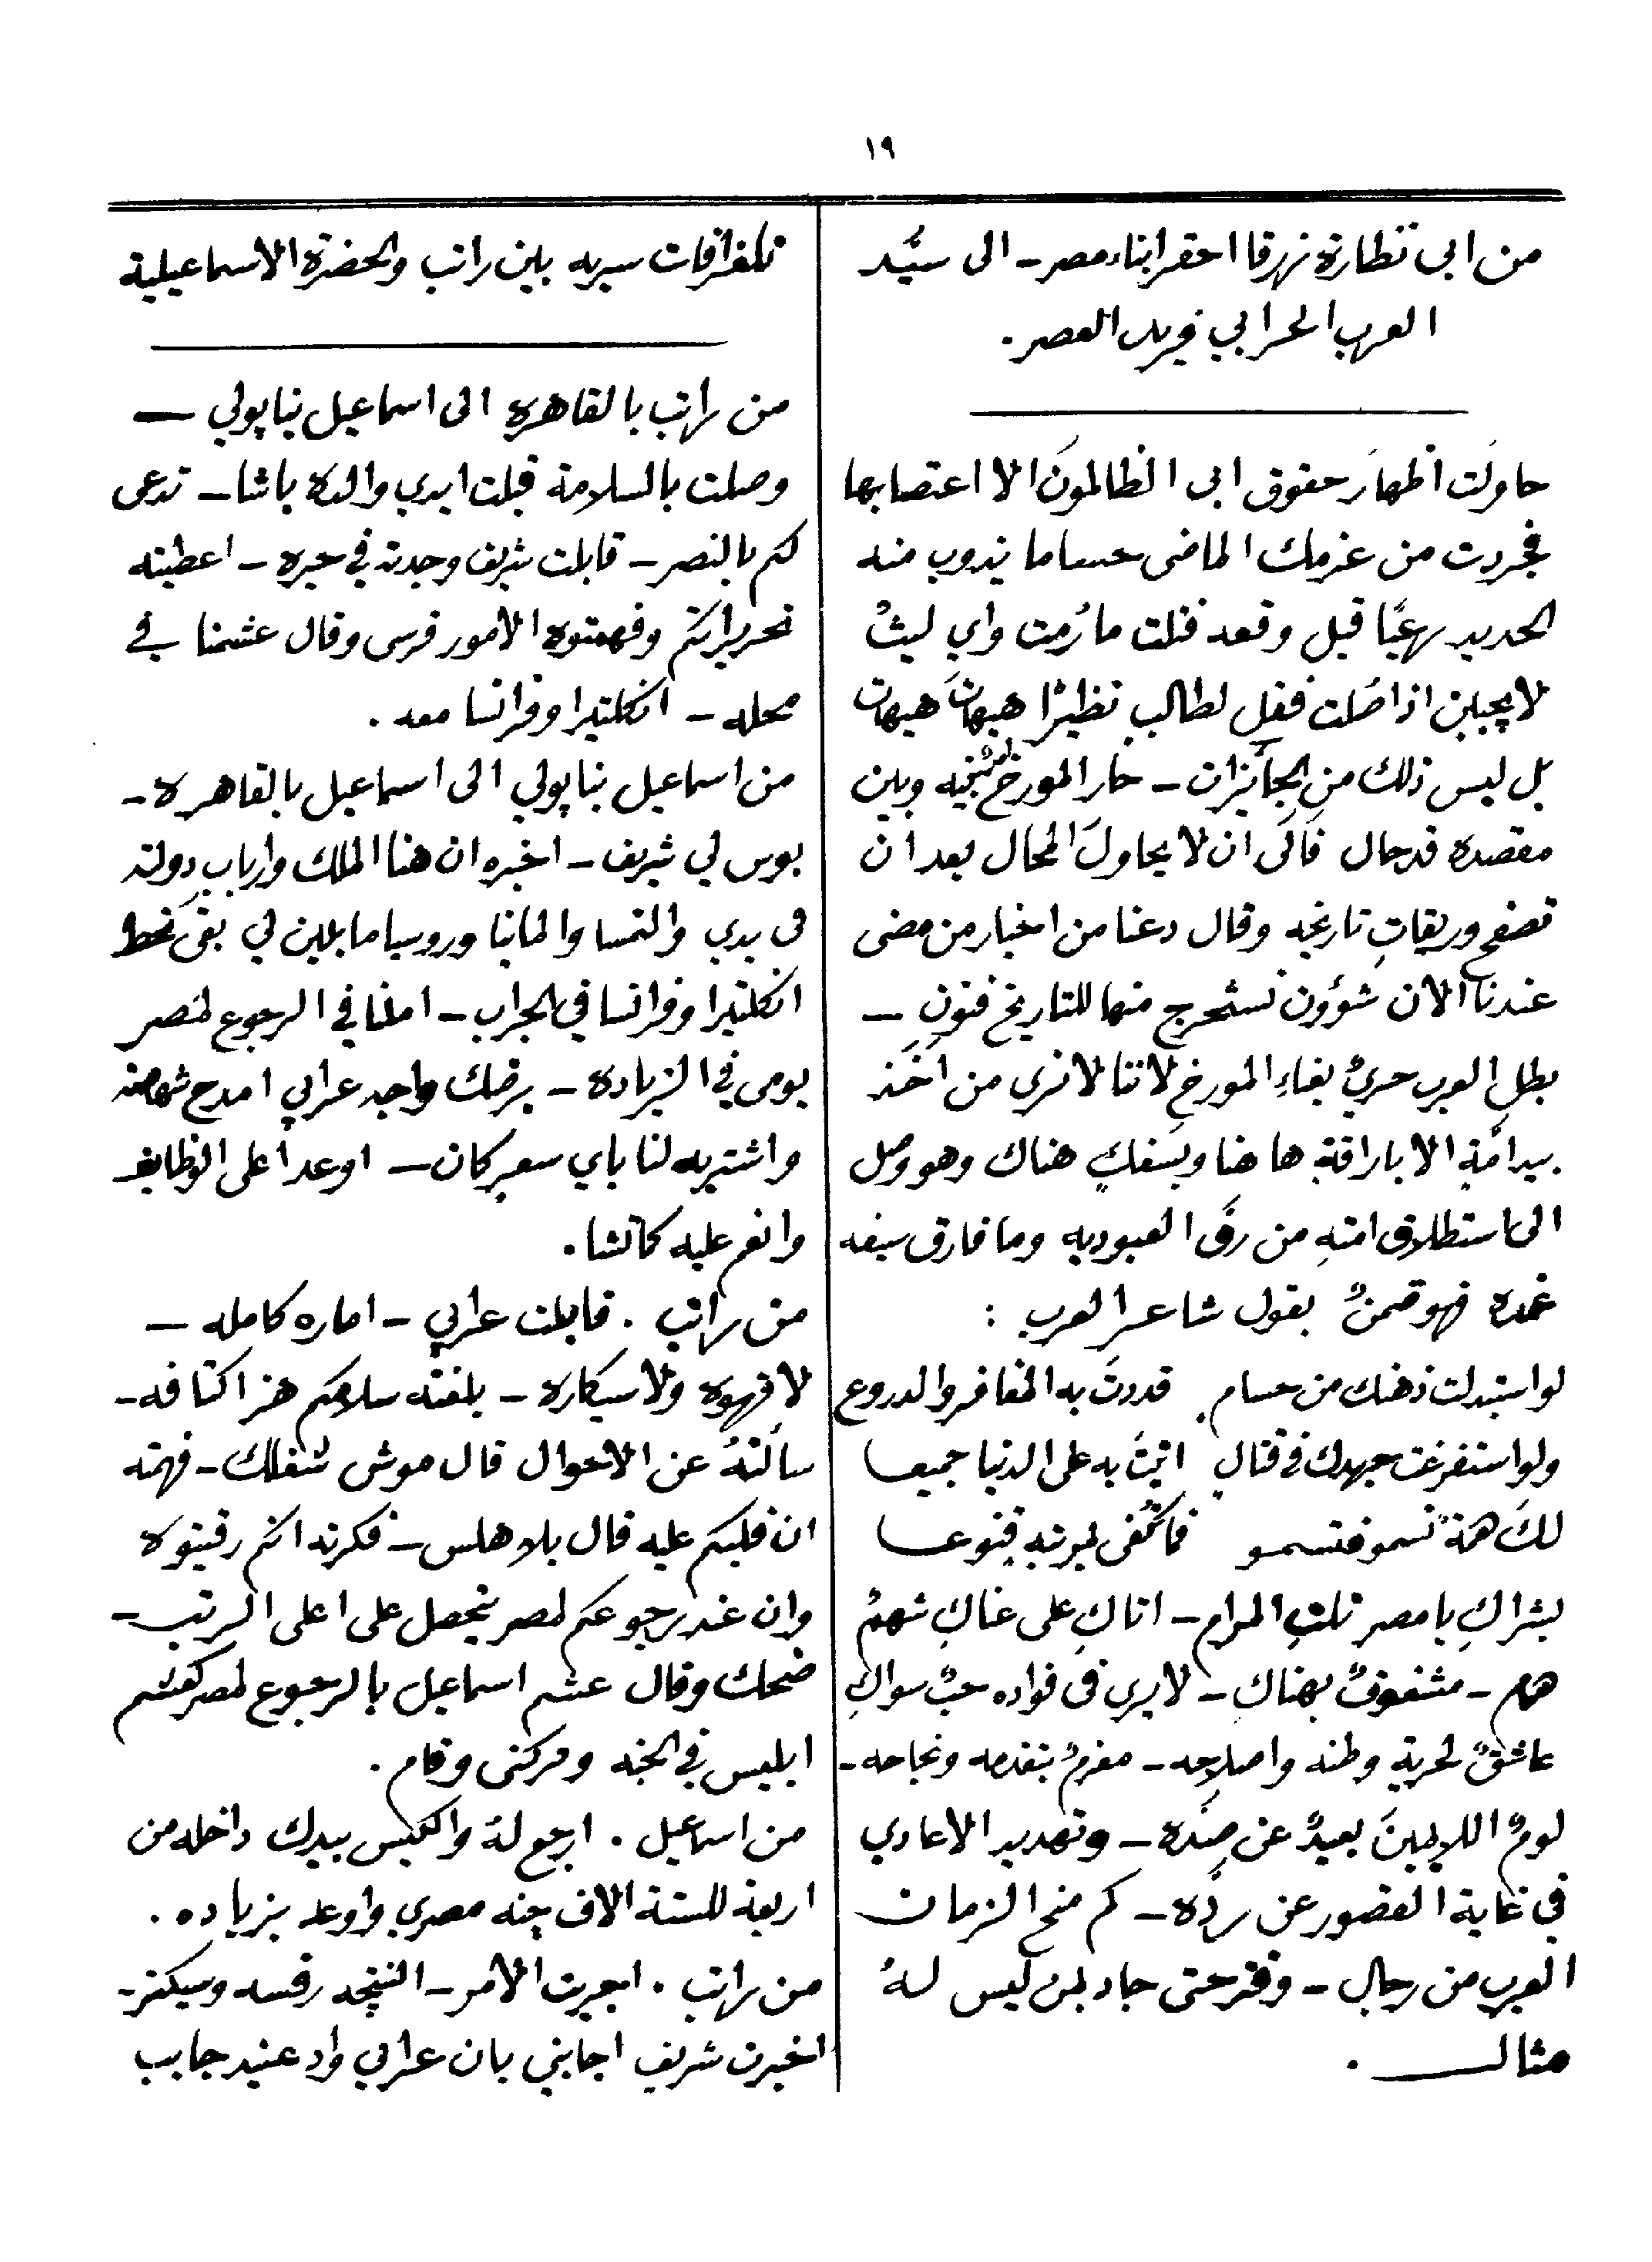 ١٩
من ابي نظارة زرقا احقر ابناء مصر – الى سيَّد
العرب الحرابي فريد العصر .
حاولَت اظهارَ حقوق ابى الظالمونَ الا اغتصابها
فجردت من عزمك الماضى حساما يذوب منه
الحديد رعبًا قبل وقعه فنلت ما رُمت واي ليثٌ
لا يجبلن اذا صُلت فقل لطالب نظيرًا هيهاتَ هيهات
بل ليس ذلك من الجائِزات – حار المورخ بينه وبين
مقصده قد حال فآلى ان لا يحاولَ المحال بعد ان
تصفح وريقاتِ تاريخه وقال دعنا من اخبار من مضى
عندنا الان شؤون نستخرج منها للتاريخ فنونٍ –
بطل العرب حريٌ بغاءِ المورخ لاننا لا نرى من اخَذ
بيد امَّةٍ الا باراقةٍ ها هنا وبسفكٍ هناك وهو وصل
الى استطلاق امته من رقَ العبوديه وما فارق سيفه
غمده فهو قمنٌ بقول شاعر العرب :
لو استبدلت ذهنك من حسام قددتَ به المغافر والدروع
ولو استفرغت جهدك في قتال اتيتَ به على الدنيا جميعا
لكَ همةٌ تسمو فتسمو فما تُلفى لمرتبهٍ قنوعا
بشراكِ يا مصر نلتِ المرام – اتاكِ على غناكِ شهمٌ
همام – مشغوفٌ بهناكِ – لا يرى فى فواده حبٌ سواكِ
عاشقٌ لحرية وطنه واصلاحه – مغرمٌ بتقدمه ونجاحه –
لومُ اللايمينَ بعيدٌ عن صدَّه – وتهديد الاعادي
في غاية القصور عن ردَّه – كم منح الزمان
العرب من رجالٍ – وقتر حتى جاد بمن ليس لهُ
مثال .
تلغرافات سريه بين راتب والحضرة الاسماعيلية
من راتب بالقاهره الى اسماعيل نيابولي –
وصلت بالسلامة قبلت ايدي والدة باشا – تدعى
لكم بالنصر – قابلت شريف وجدته في حيره – اعطيته
تحريراتكم وفهمتوه الامور فرسى وقال عشمنا في
محله – انكلتيرا وفرانسا معه .
من اسماعيل نيابولي الى اسماعيل بالقاهره –
بوس لي شريف – اخبره ان هنا الملك وارباب دولته
فى يدي والنمسا والمانيا وروسيا مايلين لي بقى نحط
انكلتيرا وفرانسا في الجراب – املنا في الرجوع لمصر
يومى في الزياده – برضك واجه عرابي امدح شهامته
واشتريه لنا باي سعر كان – اوعد اعلى الوظايف
وانعم عليه كمانشا .
من راتب . قابلت عرابي – اماره كامله –
لا قهوه ولا سيكاره – بلغته سلامكم هز اكتافه –
سالتهُ عن الاحوال قال موش شغلك – فهمته
ان قلبكم عليه قال بلا هلس – فكرته انكم رقيتوه
وان عند رجوعكم لمصر يتحصل على اعلى الرتب –
ضحك وقال عشم اسماعيل بالرجوع لمصر كعشم
ابليس في الجنه وتركنى وقام .
من اسماعيل . ارجع لهُ والكيس بيدك داخله من
اربعة للستة الاف جنه مصري واوعد بزياده .
من راتب . اجريت الامر – النتيجه رفسه وسيكتر –
اخبرت شريف اجابني بان عرابي واد عنيد جايب